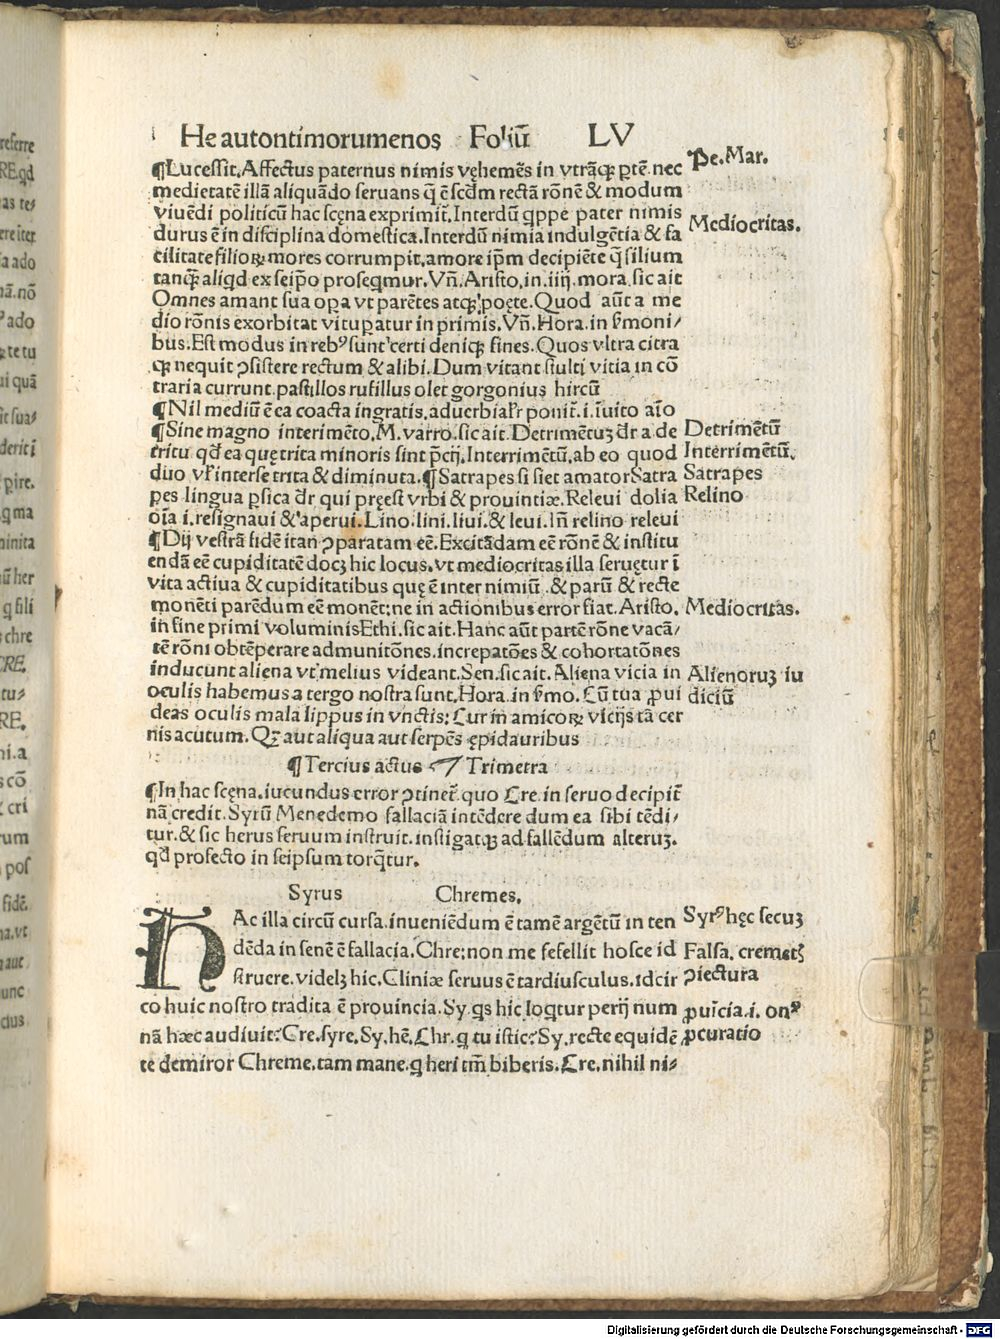 He autontimorumenos Foliū LV
¶Lucessit. Affectus paternus nimis vęhemēs in vtrāqꝫ ꝑtē nec
Pe. Mar.
medietatē illā aliquādo seruans q̄ ē scd̄m rectā rōnē & modum
viuēdi politicū hac scęna exprimit̄. Interdū qꝓpe pater nimis
Mediocritas.
durus ē in disciplina domestica. Interdū nimia indulgētia & fa
cilitate filioꝝ mores corrumpit, amore ip̄m decipiēte q̄ filium
tanꝗ̄ aliqd ex seip̄o proseqmur. Vn̄. Aristo. in. iiij. mora. sic ait
Omnes amant sua oꝑa vt parētes atqꝫ poęte. Quod aūt a me
dio rōnis exorbitat vituꝑatur in primis. Vn̄. Hora. in ẜmoni/
bus. Est modus in rebꝰ sunt certi deniqꝫ fines. Quos vltra citra
qꝫ nequit ꝯsistere rectum & alibi. Dum vitant stulti vitia in cō
traria currunt. pastillos rufillus olet gorgonius hircū
¶Nil mediū ē ea coacta ingratis. aduerbialr̄ ponit̄. i. īuito aīo
¶Sine magno interimēto. M. varro. sic ait. Detrimētuꝫ dr̄ a de
Detrimētū
tritu qd̄ ea quę trita minoris sint p̄cij. Interrimētū. ab eo quod
Interrimētū.
duo vl̄ inter se trita & diminuta. ¶Satrapes si siet amator Satra
Satrapes
pes lingua ꝑsica dr̄ qui pręest vrbi & prouintiæ. Releui dolia
Relino
oīa i. resignaui & aperui. Lino. lini. liui. & leui. In̄ relino releui
¶Dij vestrā fidē itan ꝯparatam eē. Excitādam eē rōnē & institu
endā eē cupiditatē docꝫ hic locus. vt mediocritas illa seruętur ī
vita actiua & cupiditatibus quę ē inter nimiū & parū & recte
monēti parēdum eē monēt: ne in actionibus error fiat. Aristo.
Mediocritas.
in fine primi voluminis Ethi. sic ait. Hanc aūt partē rōne vacā/
tē rōni obtēperare admunitōnes. increpatōes & cohortatōnes
inducunt aliena vt melius videant. Sen. sic ait. Aliena vicia in
Alienoruꝫ iu
oculis habemus a tergo nostra sunt. Hora. in ẜmo. Cū tua ꝓui
diciū
deas oculis mala lippus in vnctis: Cur in amicoꝝ vicijs tā cer
nis acutum. Qꝫ aut aliqua aut serpēs ępidauribus
¶Tercius actus Trimetra
¶In hac scęna. iucundus error ꝯtinet̄. quo Cre. in seruo decipit̄
nā credit. Syrū Menedemo fallaciā intēdere dum ea sibi tēdi/
tur. & sic herus seruum instruit. instigatqꝫ ad fallēdum alteruꝫ.
qd̄ profecto in seipsum torq̄tur.
Syrus Chremes.
HAc illa circū cursa. inueniēdum ē tamē argētū in ten
Syrꝰ hęc secuꝫ
dēda in senē ē fallacia. Chre: non me fefellit hosce id
Falsa. cremetꝫ
struere. videlꝫ hic. Cliniæ seruus ē tardiusculus. idcir
ꝯiectura
co huic nostro tradita ē prouincia. Sy. qs hic loqtur perij num
ꝓuīcia. i. onꝰ
nā hæc audiuit? Cre. syre. Sy. hē. Chr. q tu istic? Sy. recte equidē
ꝓcuratio
te demiror Chreme. tam mane. q heri tm̄ biberis. Cre. nihil ni/
Digitalisierung gefördert durch die Deutsche Forschungsgemeinschaft - DFG